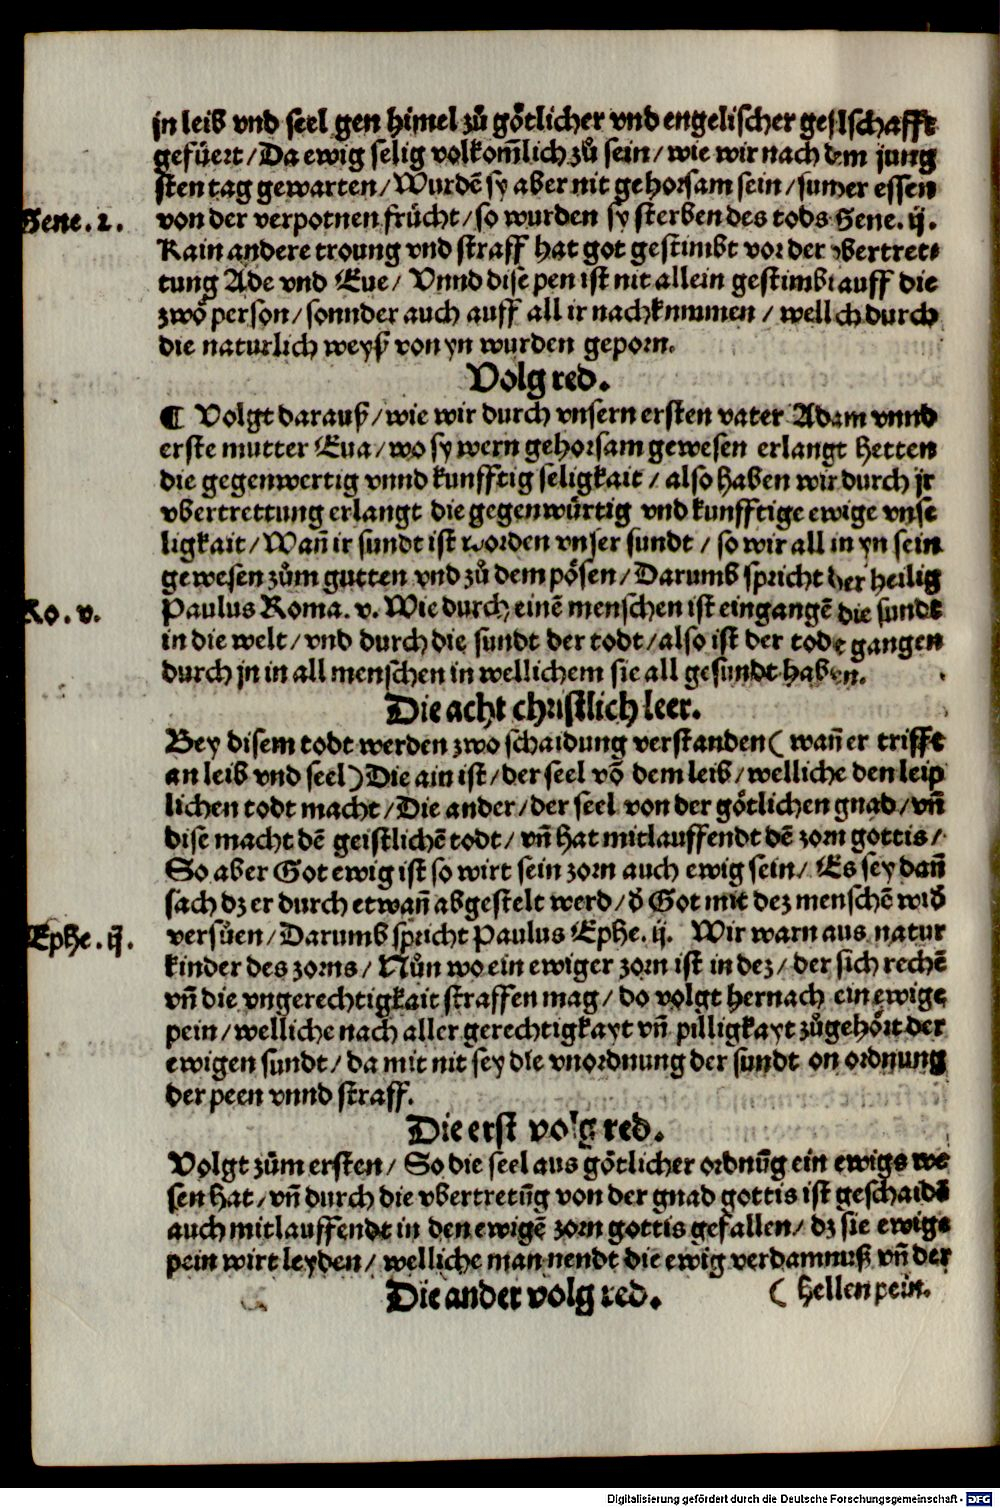 jn leib vnd seel gen himel zů götlicher vnd engelischer geslschafft
gefüert / Da ewig selig volkom̄lich zů sein / wie wir nach dem jung
sten tag gewarten / Wurdē sy aber nit gehorsam sein / sunder essen
Gene. 2.
von der verpotnen frücht / so wurden sy sterben des tods Gene. ij.
Kain andere troung vnd straff hat got gestimbt vor der vbertret⸗
tung Ade vnd Eue / Vnnd dise pen ist nit allein gestimbt auff die
zwo person / sonnder auch auff all ir nachkummen / wellch durch
die naturlich weyß von yn wurden geporn.
Volg red.
¶ Volgt darauß / wie wir durch vnsern ersten vater Adam vnnd
erste mutter Eua / wo sy wern gehorsam gewesen erlangt hetten
die gegenwertig vnnd kunfftig seligkait / also haben wir durch jr
vbertrettung erlangt die gegenwürtig vnd kunfftige ewige vnse
ligkait / Wan̄ ir sundt ist worden vnser sundt / so wir all in yn sein
gewesen zům gutten vnd zů dem pösen / Darumb spricht der heilig
Ro. v.
Paulus Roma. v. Wie durch einē menschen ist eingangē die sundt
in die welt / vnd durch die sundt der todt / also ist der tode gangen
durch jn in all menschen in wellichem sie all gesundt haben̄.
Die acht christlich leer.
Bey disem todt werden zwo schaidung verstanden ( wan̄ er trifft
an leib vnd seel ) Die ain ist / der seel vō dem leib / welliche den leip
lichen todt macht / Die ander / der seel von der götlichen gnad / vn̄
dise macht dē geistlichē todt / vn̄ hat mitlauffendt dē zorn gottis /
So aber Got ewig ist so wirt sein zorn auch ewig sein / Es sey dan̄
sach dz er durch etwan̄ abgestelt werd / d̄ Got mit dez menschē wid̄
Ephe. ij.
versüen / Darumb spricht Paulus Ephe. ij. Wir warn aus natur
kinder des zorns / Nůn wo ein ewiger zorn ist in dez / der sich rechē
vn̄ die vngerechtigkait straffen mag / do volgt hernach ein ewige
pein / welliche nach aller gerechtigkayt vn̄ pilligkayt zůgehört der
ewigen sundt / da mit nit sey die vnordnung der sundt on ordnung
der peen vnnd straff.
Die erst volg red.
Volgt zům ersten / So die seel aus götlicher ordnūg ein ewigs we
sen hat / vn̄ durch die vbertretūg von der gnad gottis ist geschaidē
auch mitlauffendt in den ewigē zorn gottis gefallen / dz sie ewige
pein wirt leyden / welliche man nendt die ewig verdamnuß vn̄ der
( hellen pein.
Die ander volg red.
Digitalisierung gefördert durch die Deutsche Forschungsgemeinschaft - DFG